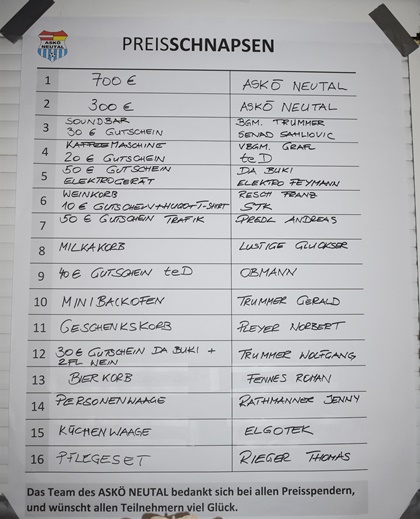 ASKÖ
NEUTAL
PREISSCHNAPSEN
1 700 € ASKÖ NEUTAL
2 300 € ASKÖ NEUTAL
3 SOUNDBAR BGM. TRUMMER
30 € GUTSCHEIN SENAD SAMLIOVIC
4 KAFFEEMASCHINE VBGM. GRAFL
20 € GUTSCHEIN teD
5 50 € GUTSCHEIN DA BUKI
ELEKTROGERÄT ELEKTRO FEYMANN
6 WEINKORB RESCH FRANZ
10 € GUTSCHEIN+HUGO+T-SHIRT STK
7 50 € GUTSCHEIN TRAFIK GREDL ANDREAS
8 MILKAKORB LUSTIGE GLUCKSER
9 40 € GUTSCHEIN teD OBMANN
10 MINIBACKOFEN TRUMMER GERALD
11 GESCHENKSKORB PLEYER NORBERT
12 30 € GUTSCHEIN DA BUKI + TRUMMER WOLFGANG
2FL WEIN
13 BIERKORB FENNES ROMAN
14 PERSONENWAAGE RATHMANNER JENNY
15 KÜCHENWAAGE ELGOTEK
16 PFLEGESET RIEGER THOMAS
Das Team des ASKÖ NEUTAL bedankt sich bei allen Preisspendern,
und wünscht allen Teilnehmern viel Glück.